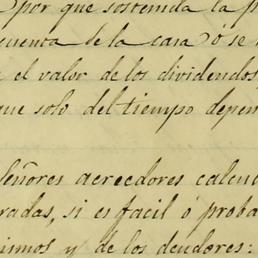 por que sostenida la p
cuenta de la cara o se
el valor de los dividendos
que solo del tiempo depen
Señores acreedores calcu
radas, si es facil ó proba
ismos y de los deudores: